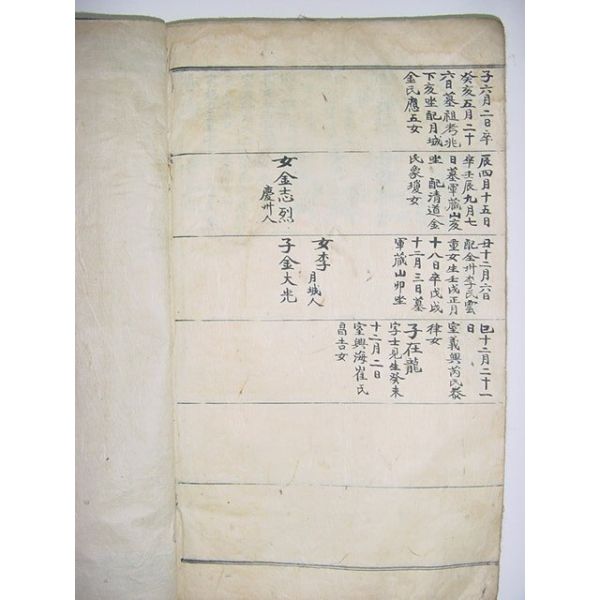 子六月二日卒
癸亥五月二十
六日墓祖考兆
下亥坐配月城
金民應五女
辰四月十五日
卒壬辰九月七
日墓軍藏山亥
坐 配清道金
民象瓊女
女金志烈
慶州人
丑十二月六日
配全州李民雲
童女生壬戌正月
十八日卒戊戌
十二月三日墓
軍藏山卯坐
女李
月城人
子金大光
巳十二月二十一
日
室義興芮民泰
律女
子在龍
字士見生癸未
十二月二日
室興海崔氏
昌吉女